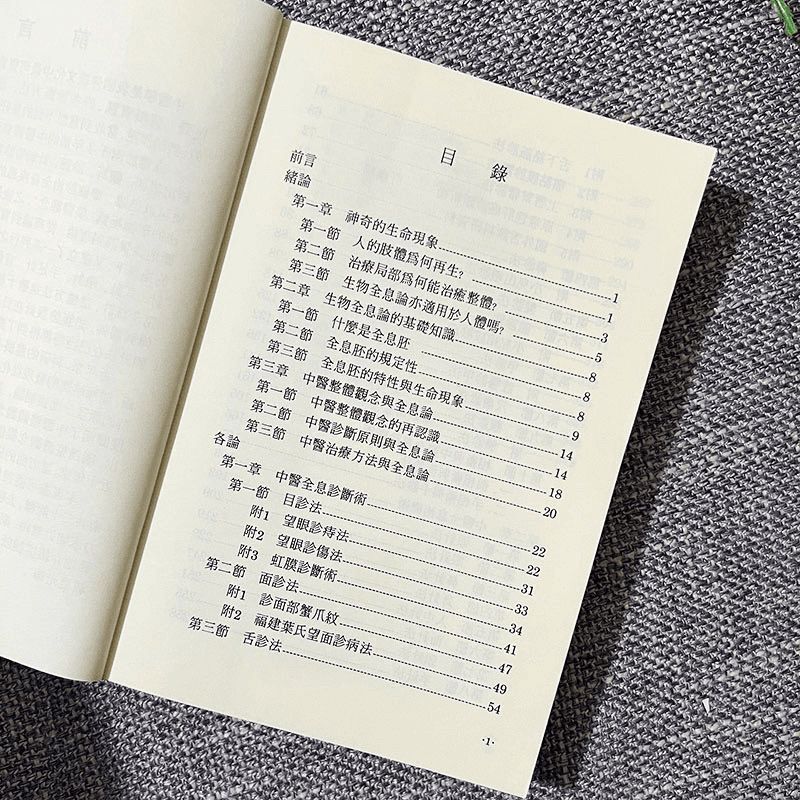 目 錄
前言
緒論
第一章 神奇的生命現象……1
第一節 人的肢體爲何再生?……1
第二節 治療局部爲何能治癒整體?……3
第三節 生物全息論亦適用於人體嗎?……5
第二章 生物全息論的基礎知識……8
第一節 什麼是全息胚……8
第二節 全息胚的規定性……8
第三節 全息胚的特性與生命現象……9
第三章 中醫整體觀念與全息論……14
第一節 中醫整體觀念的再認識……14
第二節 中醫診斷原則與全息論……18
第三節 中醫治療方法與全息論……20
各論
第一章 中醫全息診斷術……22
第一節 目診法……22
附1 望眼診痔法……31
附2 望眼診傷法……33
附3 虹膜診斷術……34
第二節 面診法……41
附1 診面部蟹爪紋……47
附2 福建葉氏望面診病法……49
第三節 舌診法……54
·1·